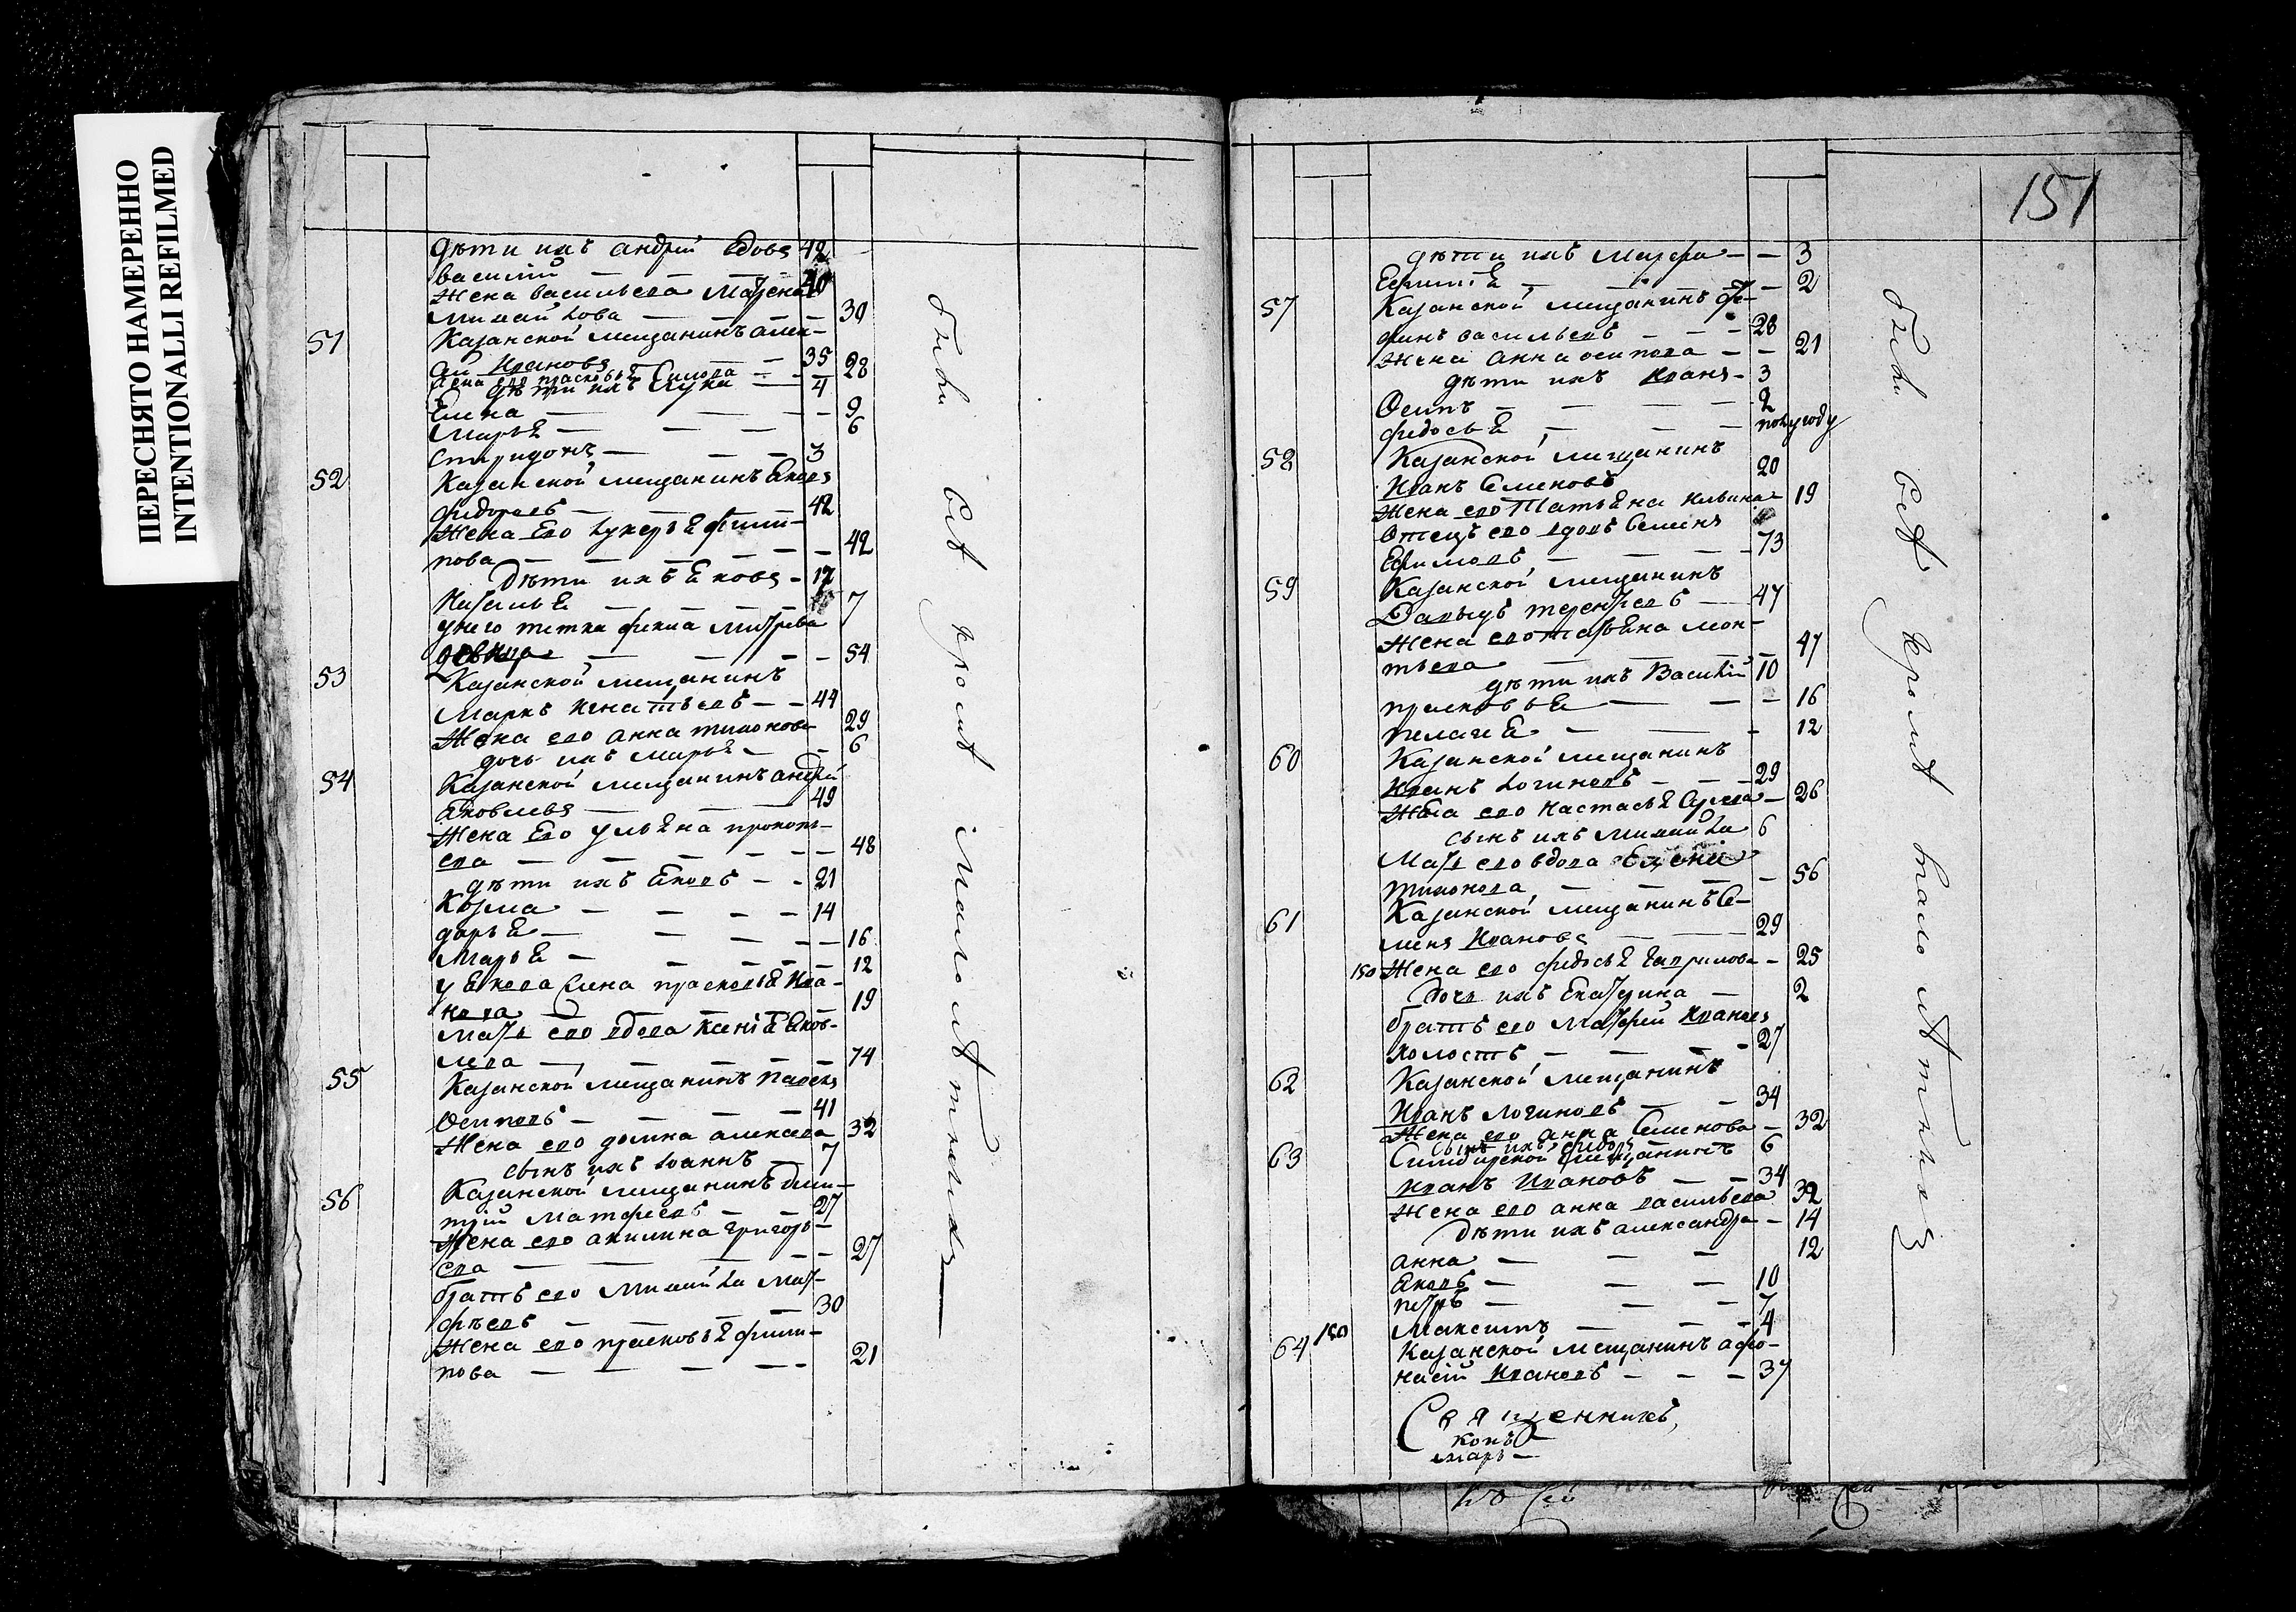 ПЕРЕСНЯТО НАМЕРЕННО
INTENTIONALLI REFILMED
дѣти ихъ андрей вдовъ 42
василий — 40
жена васильева матрена
михайлова — 30
51 Казанской мещанинъ алек-
ѣй Ивановъ — 35
жена его прасковья — 28
дѣти ихъ лука — 4
Елена — 9
Марья — 6
спиридонъ — 3
52 Казанской мещанинъ яковъ
федоровъ — 42
жена Его лукерья филип-
пова — 42
дѣти ихъ яковъ — 17
Наталья — 7
унего тетка митрева
девица — 54
53 Казанской мещанинъ
Маркъ игнатьевъ — 44
жена его анна тихонова 29
дочь ихъ марья — 6
54 Казанской мещанинъ андрей
яковлевъ — 49
жена Его ульяна прокопь-
ева — 48
дѣти ихъ яковъ — 21
Козма — 14
дарья — 16
Марья — 12
у якова жена прасковья Ива-
нова — 19
мать его вдова яков-
лева — 74
55 Казанской мещанинъ павелъ
осиповъ — 41
жена его домна алексева 32
сынъ ихъ иоаннъ — 7
56 Казанской мещанинъ дми-
трiй матфеевъ — 27
жена его акилина григорь-
ева — 27
братъ его михайла мат-
фѣевъ — 30
жена его прасковья филип-
пова — 21
были всѣ кромѣ малолѣтнихъ
151
дѣти ихъ — 3
— 2
57 Казанской мещанинъ
васильевъ — 28
жена анна осипова — 21
дѣти ихъ Иванъ — 3
Осипъ — 2
федосья — полугоду
58 Казанской мещанинъ
Иванъ Семеновъ 20
жена его Татьяна ильина 19
отецъ его вдовъ Семенъ
Ефимовъ — 73
59 Казанской мещанинъ
Давыдъ терентьевъ — 47
жена его татьяна мои-
— 47
дѣти ихъ Василий 10
прасковья — 16
пелагея — 12
60 Казанской мещанинъ
Иванъ логиновъ — 29
жена его настасья — 26
сынъ ихъ михайла 6
Мать его вдова
тихонова — 56
61 Казанской мещанинъ Се-
менъ Ивановъ — 29
150 жена его федосья гаврилова — 25
дочь ихъ Екатерина — 2
братъ его Матфей Ивановъ
холостъ — 27
62 Казанской мещанинъ
Иванъ логиновъ — 34
жена его анна Семенова — 32
сынъ ихъ 6
63 Симбирской мещанинъ
Иванъ Ивановъ — 34
жена его анна васильева 32
дѣти ихъ александра — 14
анна — 12
яковъ — 10
петръ — 7
Максимъ — 4
64 150 Казанской мещанинъ афо-
насiй Ивановъ — 37
Священникъ
были всѣ кромѣ малолѣтнихъ